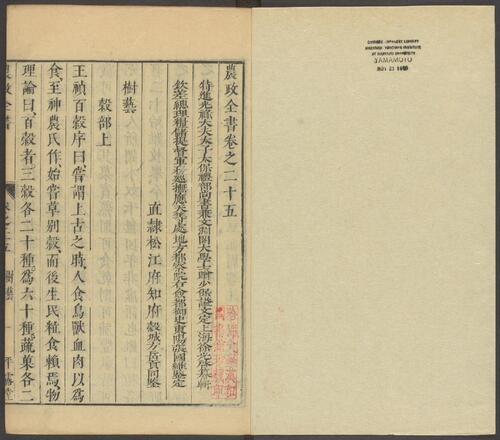 農政全書卷之二十五
特進光祿大夫太子太保禮部尚書兼文淵閣大學士贈少保諡文定上海徐光啓纂輯
欽差總理糧儲提督軍務巡撫應天等處地方都察院右僉都御史東陽張國維鑒定
直隸松江府知府穀城方岳貢同鑒
樹藝
穀部上
王禎百穀序曰嘗謂上古之時人食鳥獸血肉以為
食至神農氏作始嘗草別穀而後生民粒食賴焉物
理論曰百穀者三穀各二十種為六十種蔬菓各二
農政全書
卷之二五
樹藝
一
平露堂
YAMAMOTO